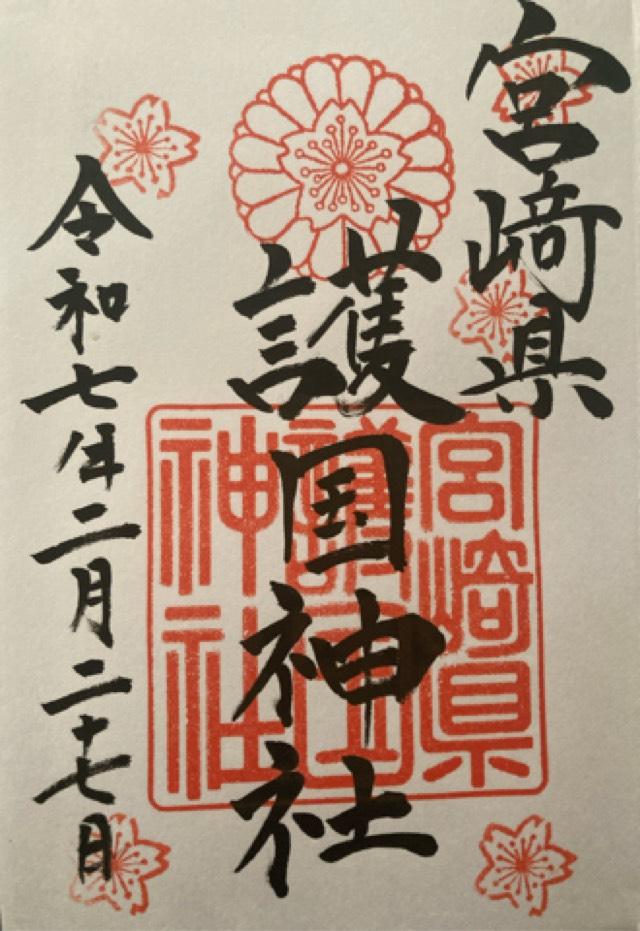 宮﨑県
護国神社
令和七年二月二十七日
宮﨑県
護国
神社